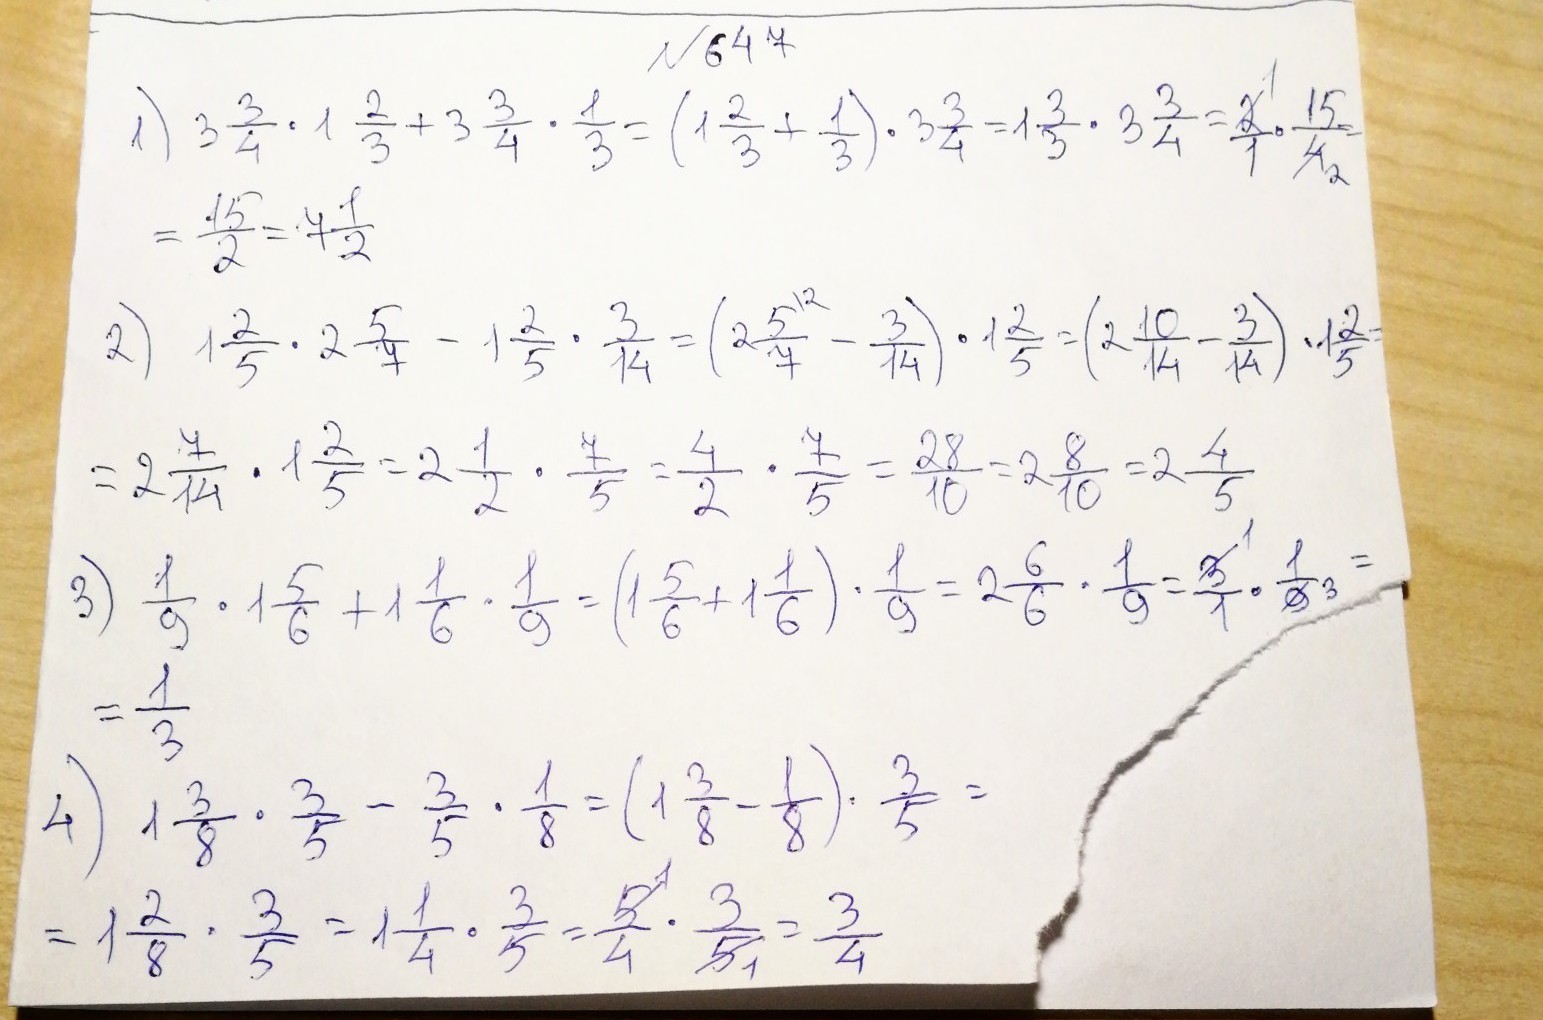 № 647
1) 3 3/4 · 1 2/3 + 3 3/4 · 1/3 = (1 2/3 + 1/3) · 3 3/4 = 1 3/3 · 3 3/4 = 2/1 · 15/4 = 1 2
= 15/2 = 7 1/2
2) 1 2/5 · 2 5/7 - 1 2/5 · 3/14 = (2 5/7 \2 - 3/14) · 1 2/5 = (2 10/14 - 3/14) · 1 2/5 =
= 2 7/14 · 1 2/5 = 2 1/2 · 7/5 = 4/2 · 7/5 = 28/10 = 2 8/10 = 2 4/5
3) 1/9 · 1 5/6 + 1 1/6 · 1/9 = (1 5/6 + 1 1/6) · 1/9 = 2 6/6 · 1/9 = 3/1 · 1/9 = 1 3
= 1/3
4) 1 3/8 · 3/5 - 3/5 · 1/8 = (1 3/8 - 1/8) · 3/5 =
= 1 2/8 · 3/5 = 1 1/4 · 3/5 = 5/4 · 3/5 = 3/4 1 1